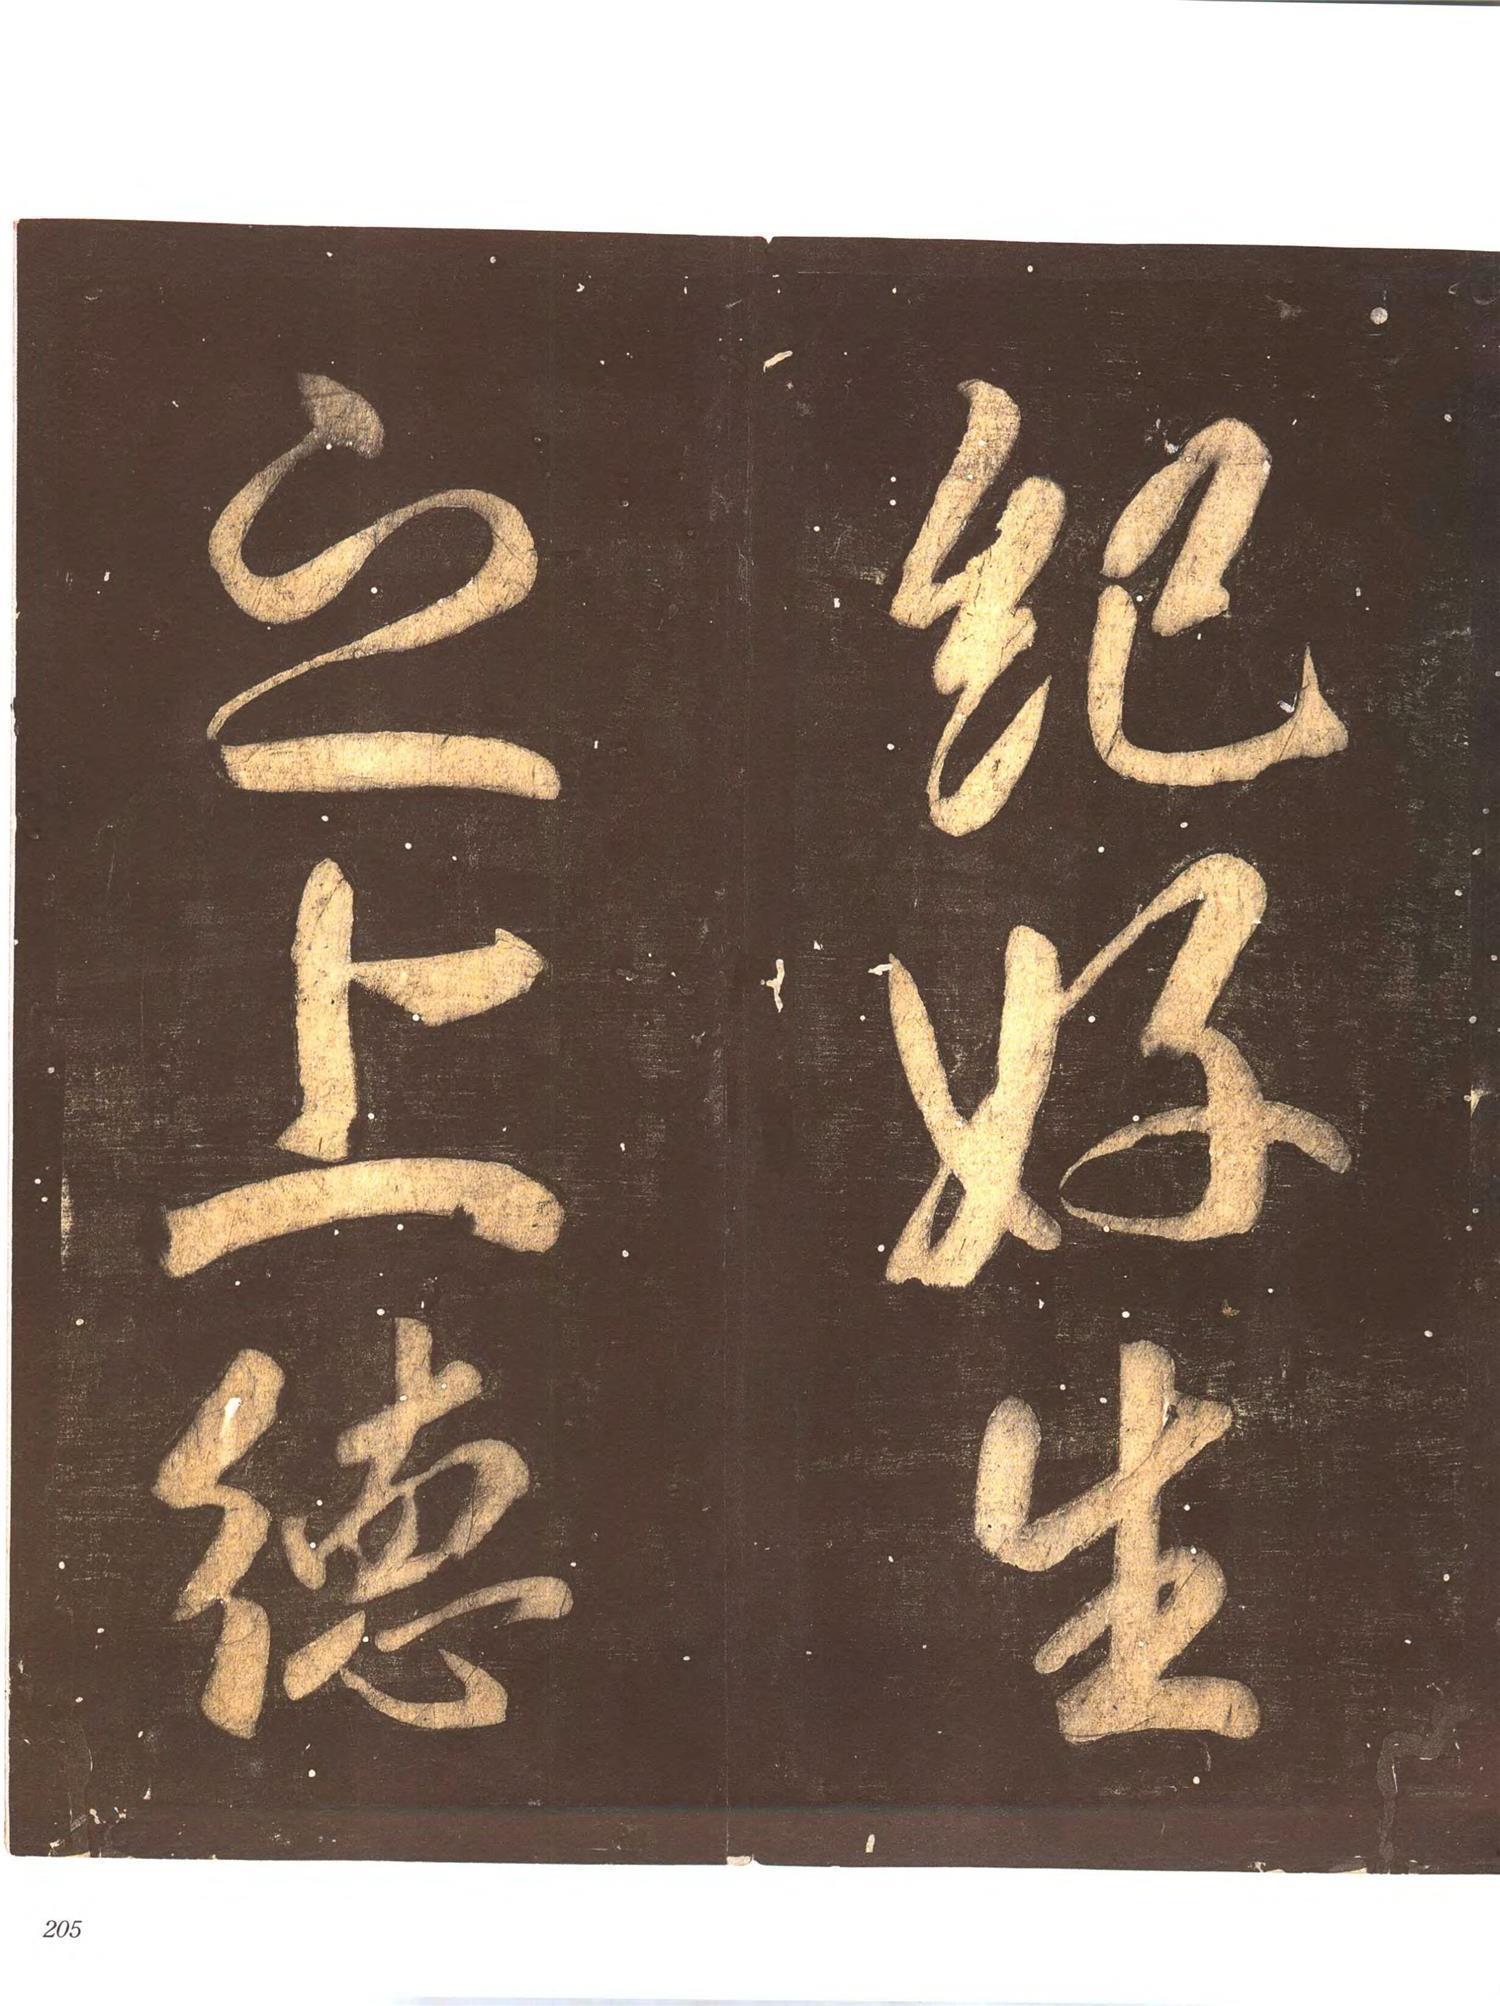 紀好生
之上德
205